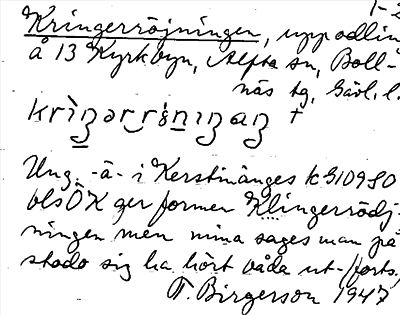 1-2
Kringerröjningen, uppodlin
å 13 Kyrkbyn, Alfta sn, Boll-
näs tg, Gävl. l.
Ung. -ä- i Kerstinänges kG10980
blsÖK ger formen Klingerrödj-
ningen men mina sagesmän på-
stodo sig ha hört båda ut- /forts.
T. Birgerson 1947